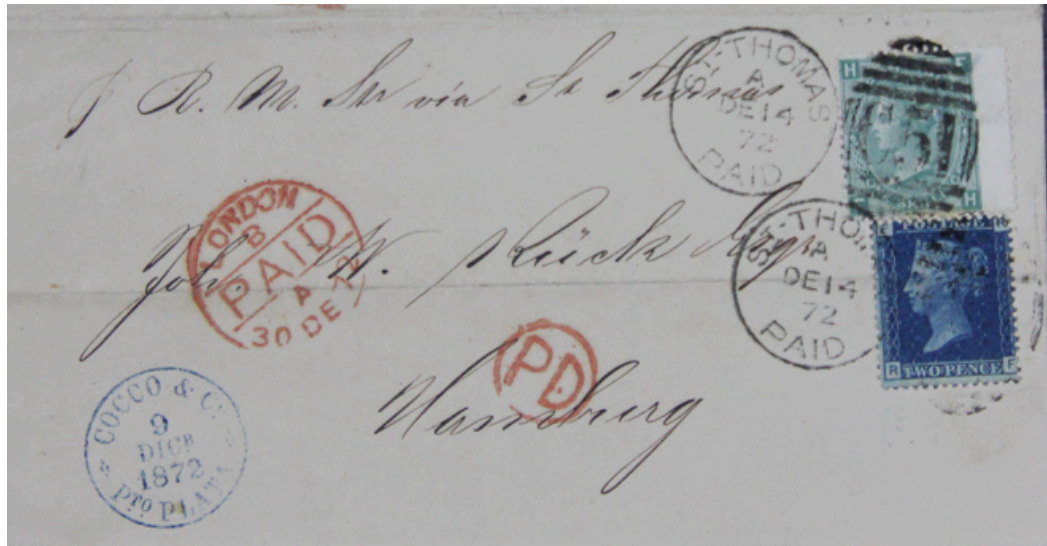 p R. M. Str via St Thomas
ST-THOMAS
A
DE 14
72
PAID
H F
51
H
LONDON
B
PAID
A
30 DE 72
Joh. W.
ST-THOM
A
DE 14
72
PAID
POSTAGE
R F
TWO PENCE
PD
Hamburg
COCCO & Co.
9
DICB
1872
Pto PLATA